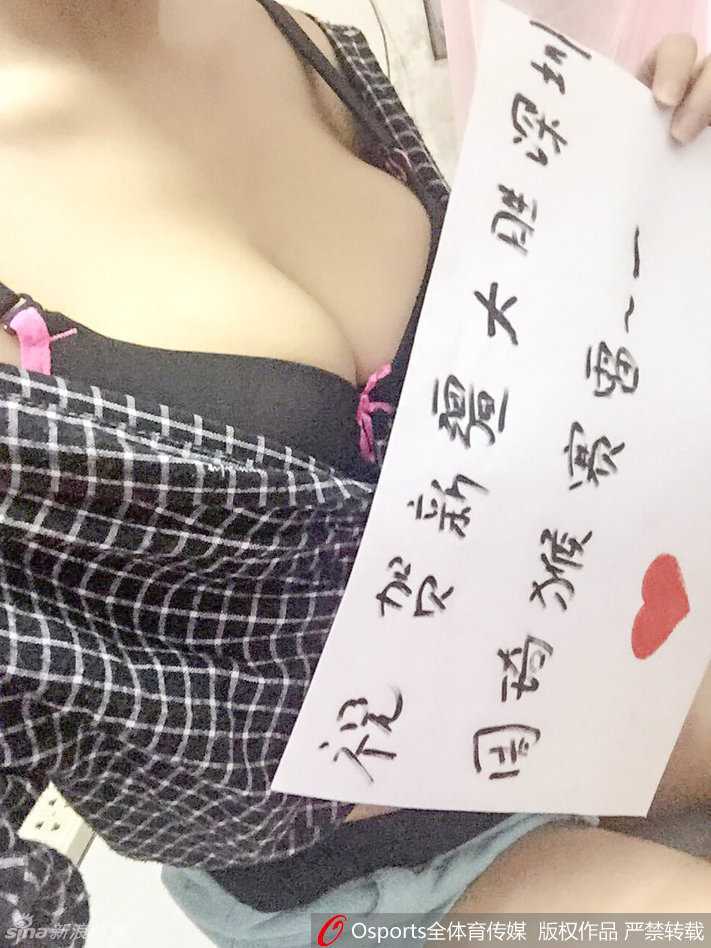 祝贺新疆大胜深圳
周琦猴赛雷~~
sina新浪
Osports全体育传媒 版权作品 严禁转载